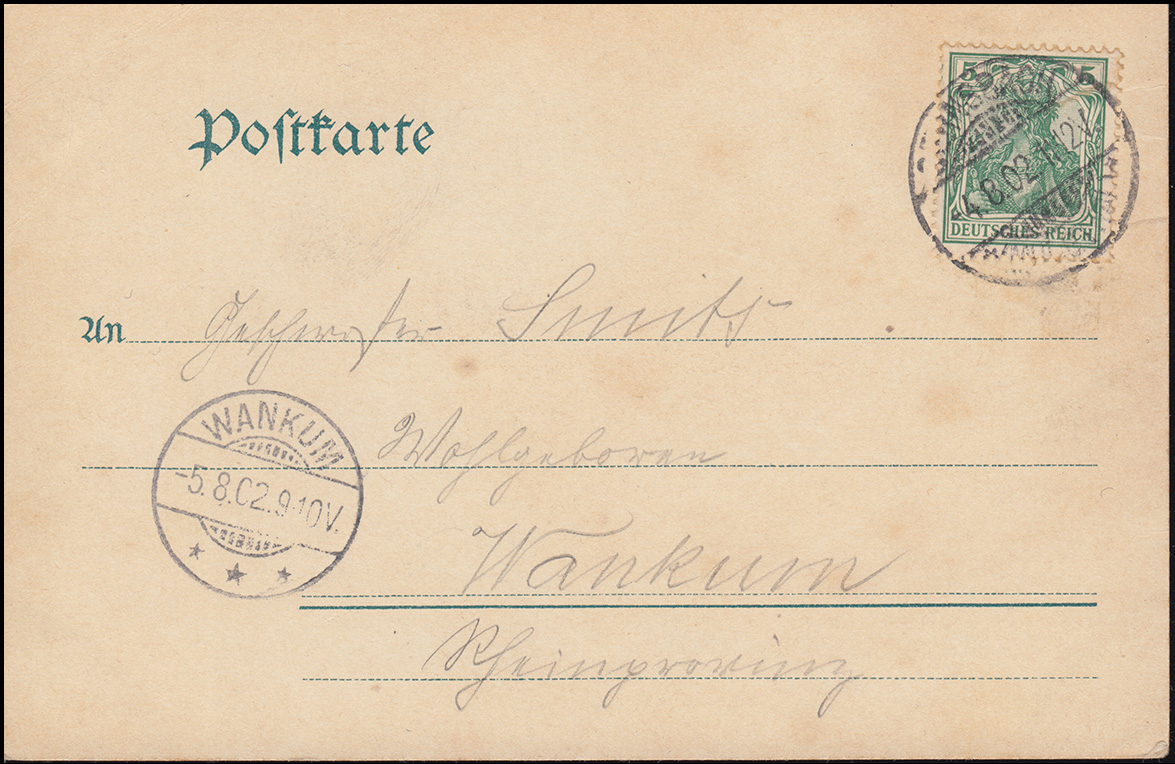 Postkarte
5 5
DEUTSCHES REICH
4.8.02.11-12V
An Geschwister Smits
Wohlgeboren
WANKUM
-5.8.02.9-10V.
Wankum
Rheinprovinz